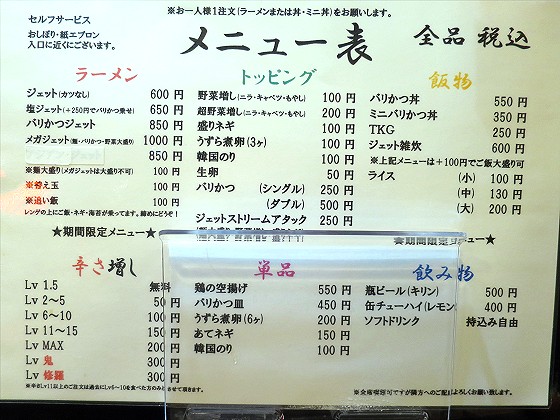 ※お一人様1注文(ラーメンまたは丼・ミニ丼)をお願いします。
セルフサービス
おしぼり・紙エプロン
入口に近くにございます。
メニュー表
全品 税込
ラーメン
ジェット(カツなし) 600 円
塩ジェット(+250円でバリかつ乗せ) 650 円
バリかつジェット 850 円
メガジェット(麺・バリかつ・野菜大盛り) 1000 円
850 円
※麺大盛り(メガジェットは大盛り不可) 100 円
※替え玉 150 円
※追い飯 100 円
レンゲの上にご飯・ネギ・海苔が乗ってます。締めにどうぞ!
トッピング
野菜増し(ニラ・キャベツ・もやし) 100 円
超野菜増し(ニラ・キャベツ・もやし) 200 円
盛りネギ 100 円
うずら煮卵(3ヶ) 100 円
韓国のり 100 円
生卵 50 円
バリかつ (シングル) 250 円
(ダブル) 500 円
ジェットストリームアタック 250 円
飯物
バリかつ丼 550 円
ミニバリかつ丼 350 円
TKG 250 円
ジェット雑炊 600 円
※上記メニューは+100円でご飯大盛り可
ライス (小) 100 円
(中) 130 円
(大) 200 円
★期間限定メニュー★
★期間限定メニュー★
辛さ増し
Lv 1.5 無料
Lv 2~5 50 円
Lv 6~10 100 円
Lv 11~15 150 円
Lv MAX 200 円
Lv 鬼 300 円
Lv 修羅 300 円
※辛さLv11以上のご注文は過去にLv6~10を食べた方のみとさせて頂きます。
単品
鶏の空揚げ 550 円
バリかつ皿 450 円
うずら煮卵(6ヶ) 200 円
あてネギ 150 円
韓国のり 100 円
飲み物
瓶ビール(キリン) 500 円
缶チューハイ(レモン) 400 円
ソフトドリンク 持込み自由
※全席喫煙可ですが隣方へのご配慮よろしくお願い致します。